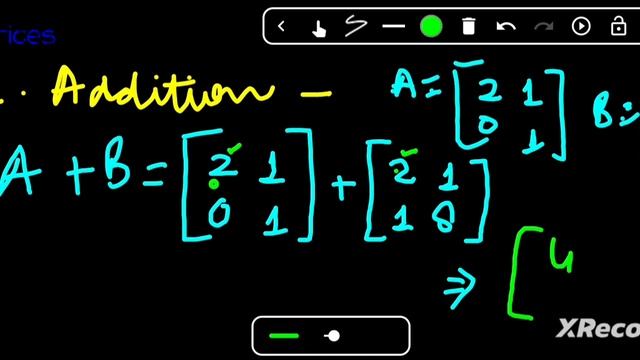 rices
. Addition –
A = [2 1
0 1] B =
A + B = [2 1
0 1] + [2 1
1 8]
⇒ [4
XReco